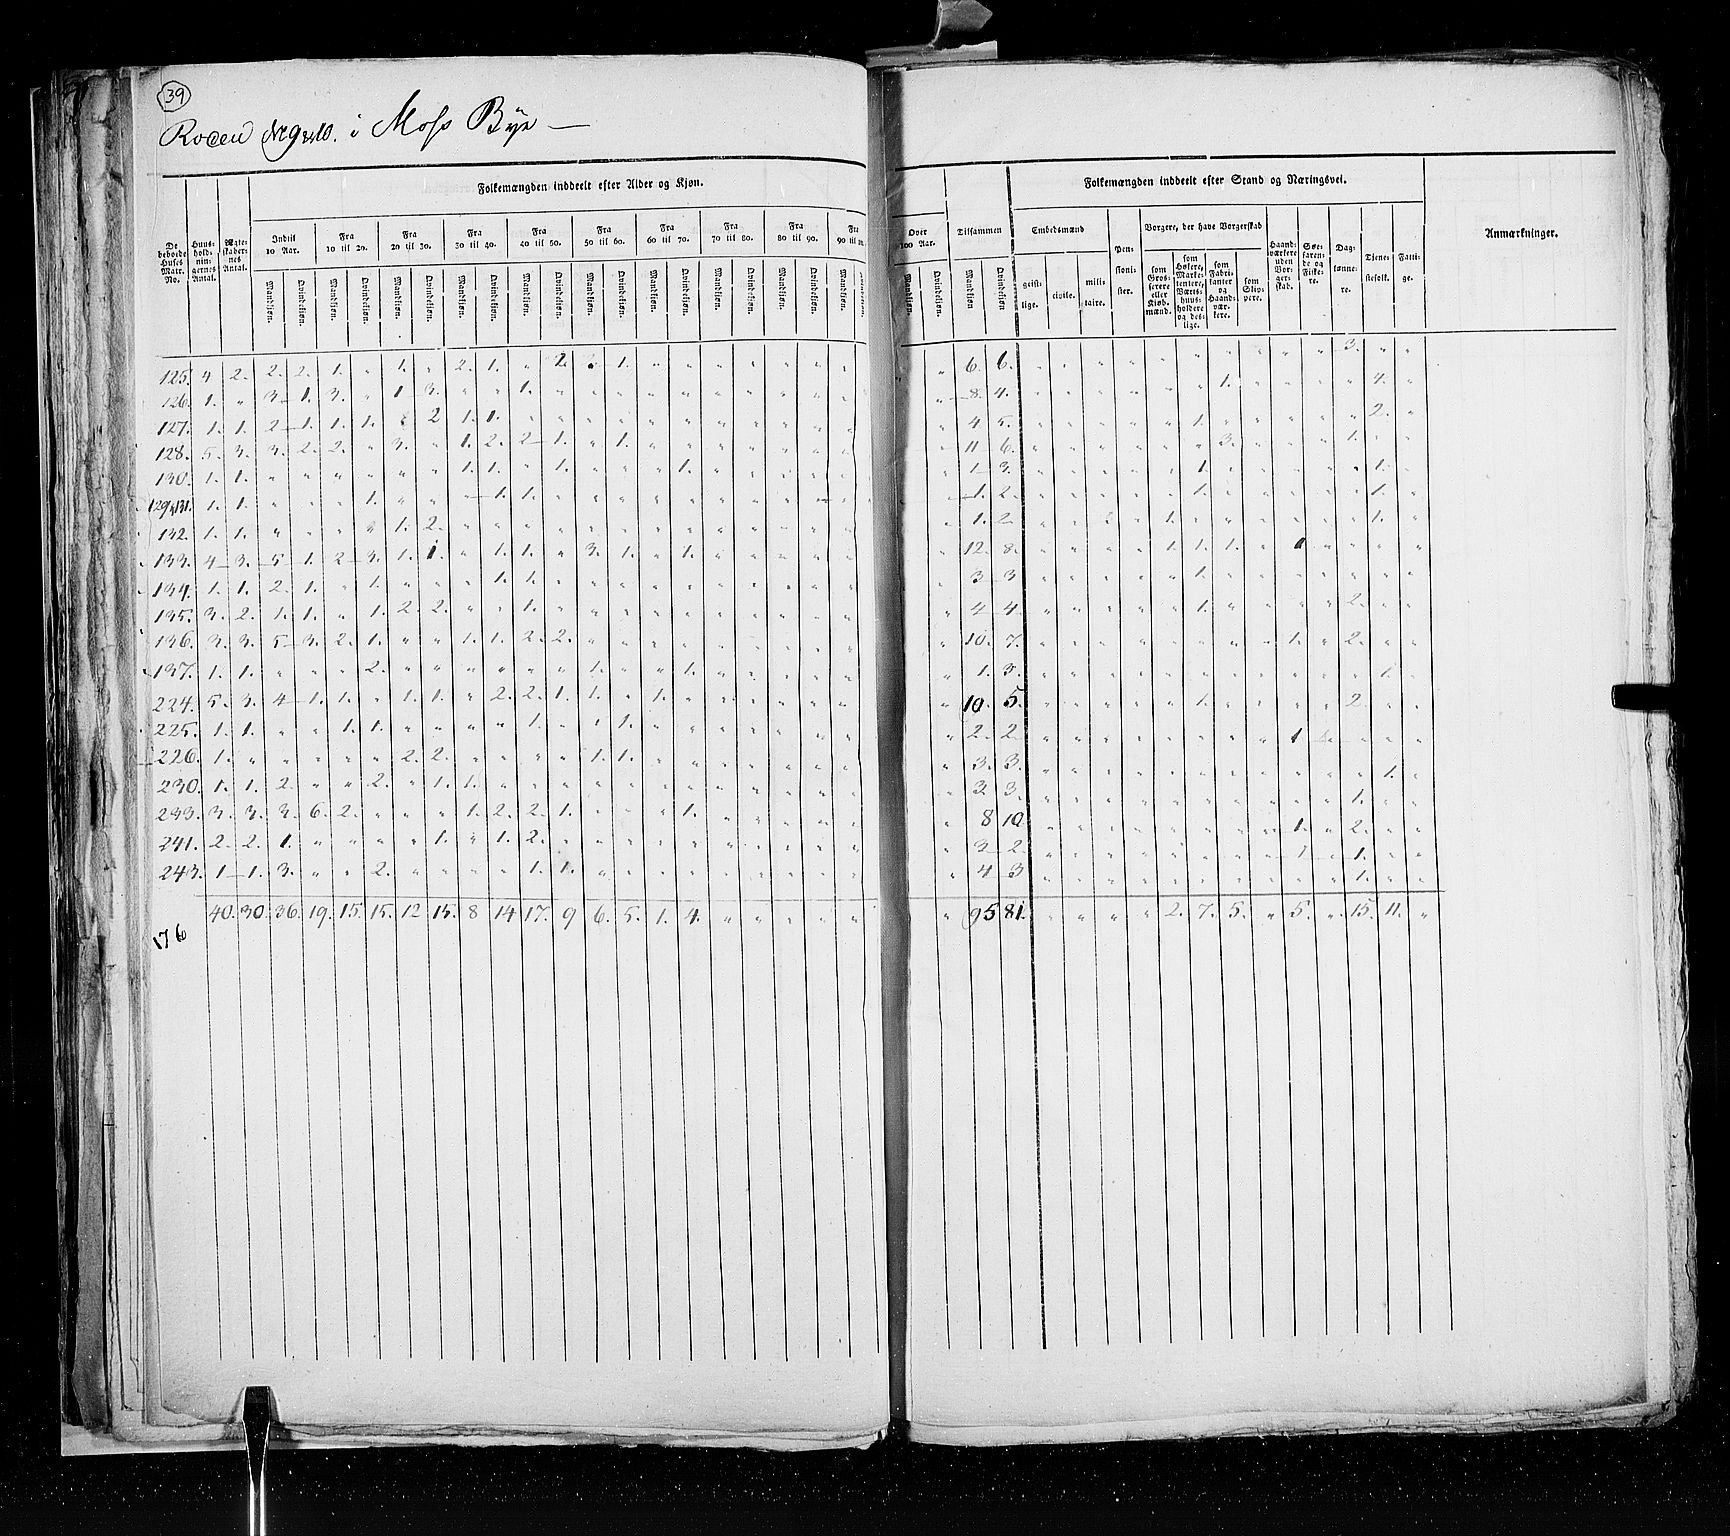 39
Roden № 9 & 10. i Moss Bye —
De beboede Huses Matr. No.
Huus-holdnin-gernes Antal.
Ægte-skaber-nes Antal.
Folkemængden inddeelt efter Alder og Kjøn.
Indtil 10 Aar. Fra 10 til 20. Fra 20 til 30. Fra 30 til 40. Fra 40 til 50. Fra 50 til 60. Fra 60 til 70. Fra 70 til 80. Fra 80 til 90. Fra 90 til Over 100 Aar. Tilsammen
Mandkjøn. Qvindekjøn. Mandkjøn. Qvindekjøn. Mandkjøn. Qvindekjøn. Mandkjøn. Qvindekjøn. Mandkjøn. Qvindekjøn. Mandkjøn. Qvindekjøn. Mandkjøn. Qvindekjøn. Mandkjøn. Qvindekjøn. Mandkjøn. Qvindekjøn. Mandkjøn. Mandkjøn. Qvindekjøn. Mandkjøn Qvindekjøn
Folkemængden inddeelt efter Stand og Næringsvei.
Embedsmænd
geist-lige. civile. mili-taire.
Pen-sioni-ster.
Borgere, der have Borgerskab
som Gros-serere eller Kjøb-mænd.
som Høkere, Marke-tentere, Værts-huus-holdere og des-lige.
som Fabri-kanter og Haand-vær-kere.
som Skip-pere.
Haand-værkere uden Bor-ger-skab.
Søe-faren-de og Fiske-re.
Dag-lønne-re.
Tjene-stefolk.
Fatti-ge.
Anmærkninger.
125. 4 2. 2. 2. 1. " 1. " 2. 1. " 2. 1. 6. 6. 3.
126. 1. " 3. 1. 3. " 1 3. " " 1. 8. 4. 1. 4.
127. 1. 1. 2 1. 1. 1. 2 1. 1. 4 5. 1. 2.
128. 5. 3. 3. 2. 2. " 3. " 1. 2. 2 1. " 1. 11 6. 3. 1.
130. 1. 1. 1. 1. " 1. 1. 1 3. 1. 1.
129 & 131. 1. 1. 1. 1. 1. 1. 2. 1. 1.
132. 1. 1. 1. 2. 1. 2. 1. 1.
133. 4 3. 5 1. 2 3. 1. 1. " 1. 1. " 3. 1. " 1. 12. 8. 1. 1. 1. 1
134. 1. 1. 2. 1. " 1. 1. 1. 3 3 1.
135. 3. 2. 1. 1. " 1. 2. 2. " " 1. 4 4. 1. 2.
136. 3. 3. 5 3. 2. 1. " " 1. 1. 2. 2. 10. 7. 1. " 2.
137. 1. 1. 2. 1. 1. 1. 3. 1.
224. 5. 3. 4 1. 1. " 1. 1. " 2. 2. 1. 1. " 1. 10. 5. 1. 2.
225. 1. 1. " " 1. 1. 1. " " 1. 2. 2. 1
226. 1. " 2. 2. 1. 1. 3. 3. 1.
230. 1. 1. 2. " " 2. " 1. 1. 3. 3. 1.
233. 3. 3. 3. 6. 2. " " " 1. 2. 2. 1. 1. 8 10 1. " 2.
241. 2. 2. 1. 1. " 1. 2. 3 2. 1 1.
243. 1 1. 3. " " 2. 1. 1. 4 3 1.
40. 30. 36. 19. 15. 15. 12 15. 8 14 17. 9 6. 5. 1. 4. " " " " " " 95 81. " " " " 2. 7. 5. " 5. " 15. 11. "
176